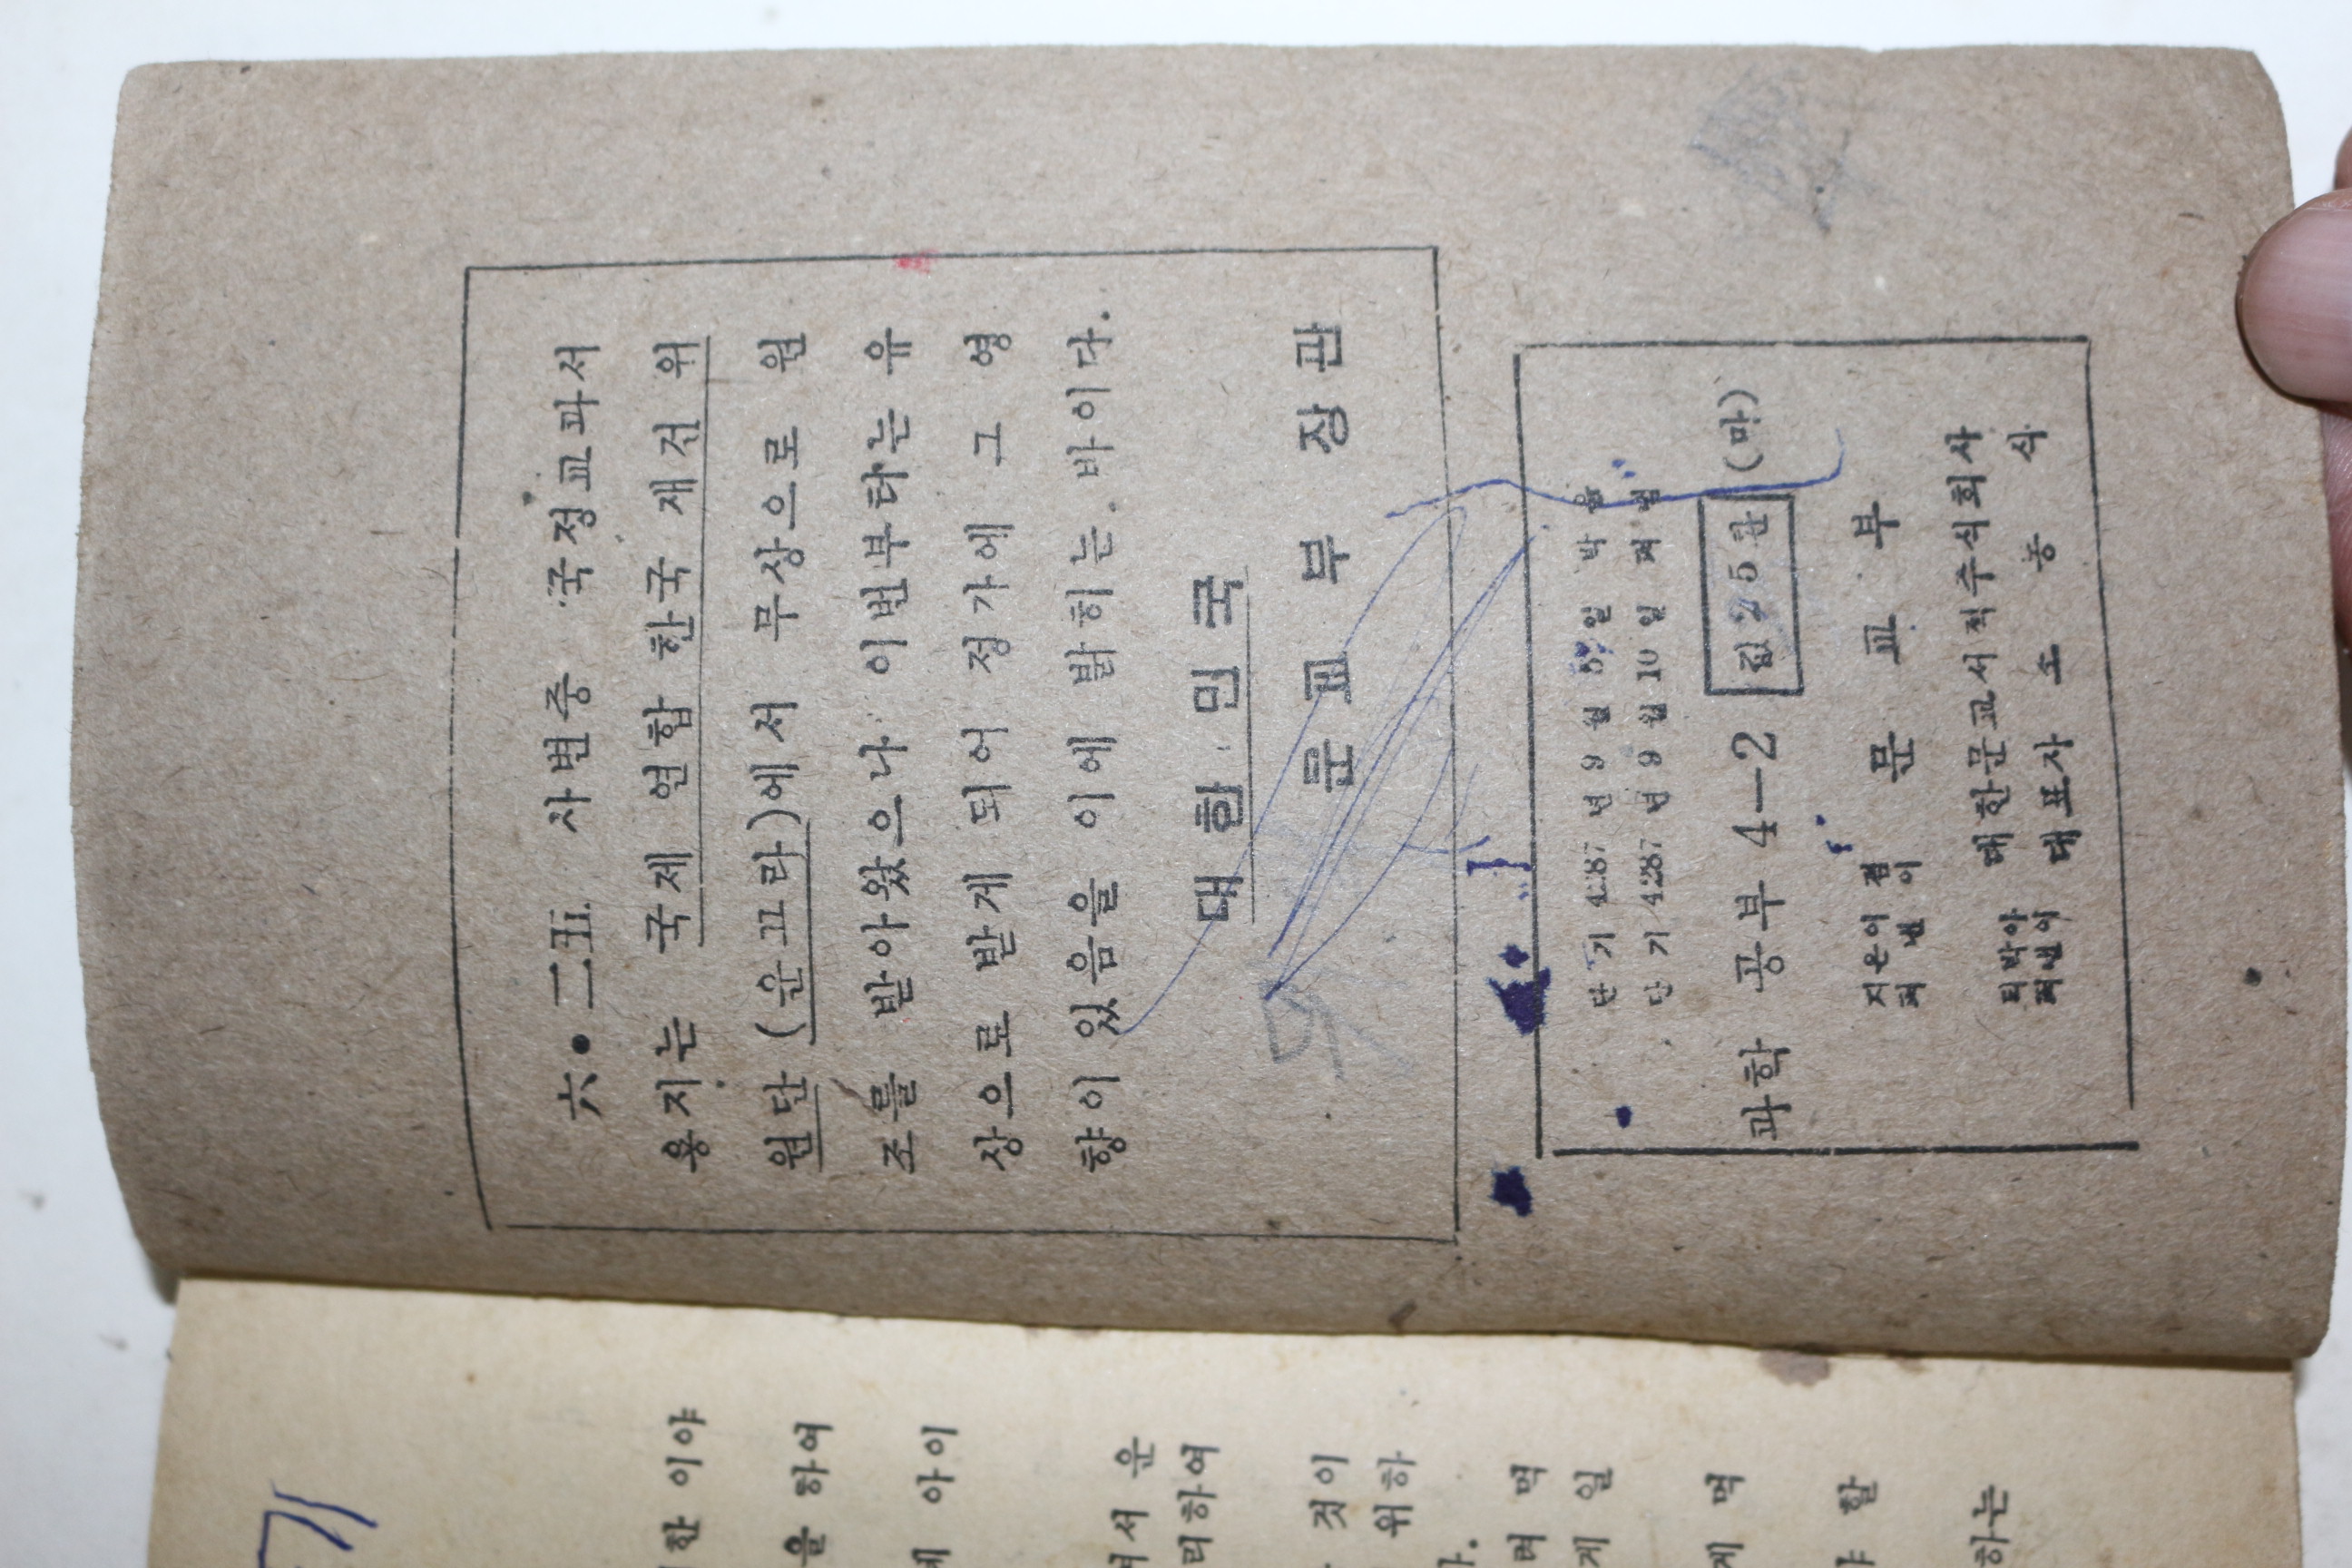 기
한 이야
을 하여
아이
여서 운
리하여
것이
위하
다.
려 먹
게 일
게 먹
야 할
하는
六•二五 사변중 국정교과서
용지는 국제 연합 한국 재건 위
원단 (운끄라)에서 무상으로 원
조를 받아왔으나 이번부터는 유
상으로 받게 되어 정가에 그 영
향이 있음을 이에 밝히는 바이다.
대한민국
문교부장관
단기 4287년 9월 5일 박음
단기 4287년 9월 10일 펴냄
과학 공부 4—2 값 25환 (마)
지은이 겸
펴낸이 문교부
되박아
펴낸이 대한문교서적주식회사
대표자 소농식